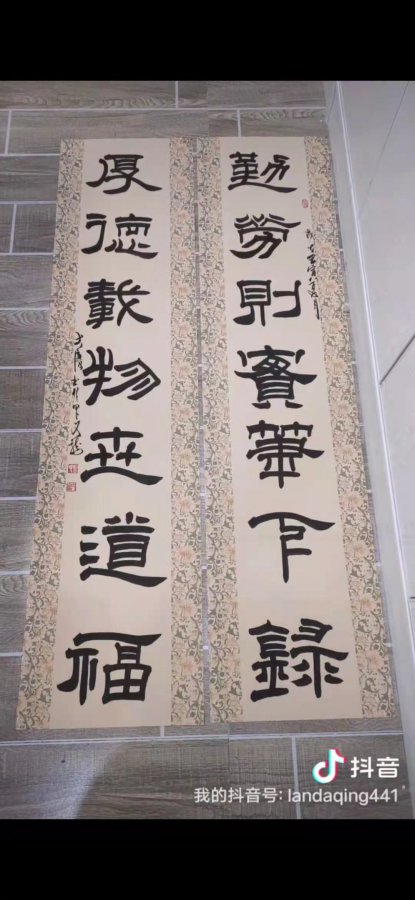 勤勞則賓筆下錄
厚德載物世道福
抖音
我的抖音号: landaqing441